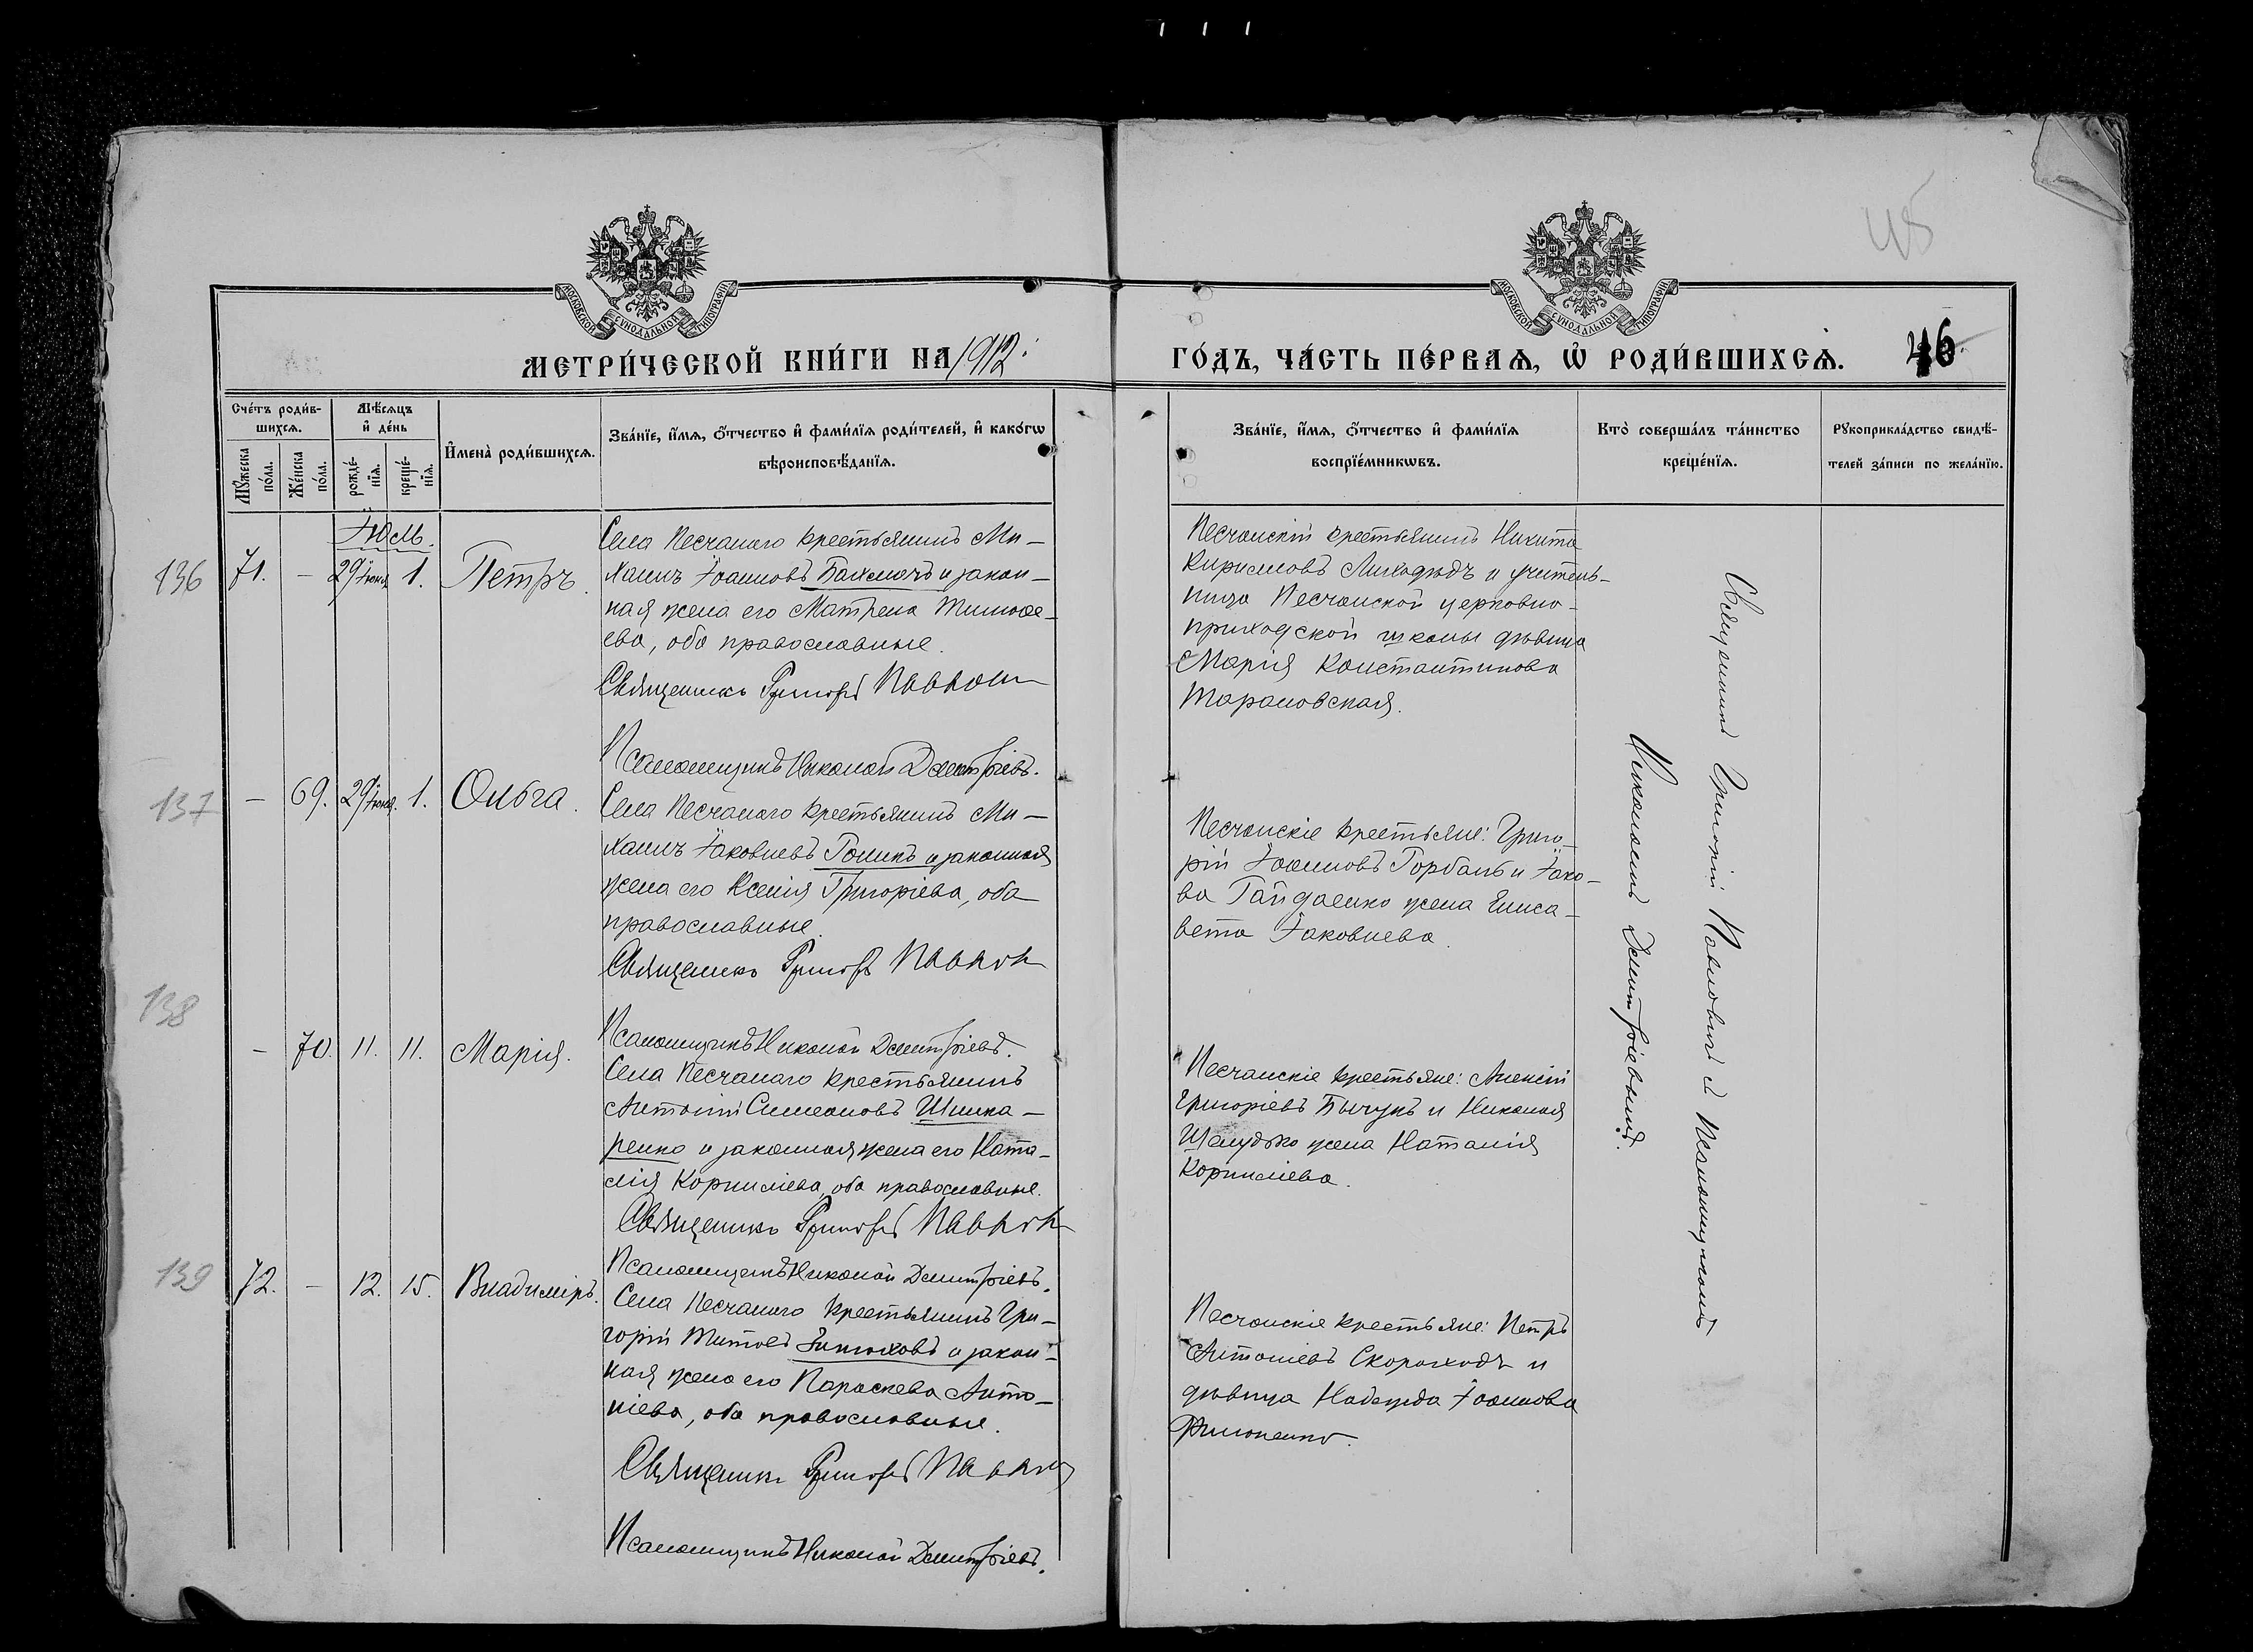 МОСКОВСКОЙ СѴНОДАЛЬНОЙ ТИПОГРАФІИ
МОСКОВСКОЙ СѴНОДАЛЬНОЙ ТИПОГРАФІИ
МЕТРИ́ЧЕСКОЙ КНИ́ГИ НА 1912.
ГО́ДЪ, ЧА́СТЬ ПЕ́РВАѦ, Ѡ҆ РОДИ́ВШИХСѦ. 46.
Сче́тъ роди́в-
шихсѧ.
Мѣ́сѧцъ
и҆ де́нь
Мꙋ́жеска
по́ла.
Же́нска
по́ла.
рожде́-
нїѧ.
креще́-
нїѧ.
И҆мена̀ роди́вшихсѧ.
Зва́нїе, и҆́мѧ, ѻ҆́тчество и҆ фами́лїѧ роди́телей, и҆ како́гѡ
вѣроисповѣ́данїѧ.
Зва́нїе, и҆́мѧ, ѻ҆́тчество и҆ фами́лїѧ
воспрїе́мникѡвъ.
Кто̀ соверша́лъ та́инство
креще́нїѧ.
Рꙋкоприкла́дство свидѣ́-
телей за́писи по жела́нїю.
Іюль.
136 71. – 29 Іюня 1. Петръ.
Села Песчанаго крестьянинъ Ми–
хаилъ Іоанновъ Бахмачъ и закон–
ная жена его Матрена Тимоѳе–
ева, оба православные.
Священникъ Григорій Павлович
Псаломщикъ Николай Дмитріевъ.
Песчанскій крестьянинъ Никита
Кирилловъ Лиходѣдъ и учитель–
ница Песчанской церковно–
приходской школы дѣвица
Марія Константинова
Тарановская.
137 – 69. 29 Іюня. 1. Ольга.
Села Песчанаго крестьянинъ Ми–
хаилъ Іаковлевъ Голикъ и законная
жена его Ксенія Григоріева, оба
православные.
Священникъ Григорій Павлович
Псаломщикъ Николай Дмитріевъ.
Песчанскіе крестьяне: Григо–
рій Іоанновъ Горбань и Іако–
ва Гайдаенко жена Елиса–
вета Іаковлева.
138 – 70. 11. 11. Марія.
Села Песчанаго крестьянинъ
Антоній Симеоновъ Шинка–
ренко и законная жена его Ната–
лія Корниліева, оба православные.
Священникъ Григорій Павлович
Псаломщикъ Николай Дмитріевъ.
Песчанскіе крестьяне: Алексій
Григоріевъ Бычукъ и Николая
Шелудько жена Наталія
Корниліева.
139 72. – 12. 15. Владиміръ.
Села Песчанаго крестьянинъ Гри–
горій Титовъ Зинюховъ и закон–
ная жена его Параскева Анто–
ніева, оба православные.
Священникъ Григорій Павлович
Псаломщикъ Николай Дмитріевъ.
Песчанскіе крестьяне: Петръ
Антоніевъ Скороходъ и
дѣвица Надежда Іоаннова
Филоненко.
Священникъ Григорій Павловичъ и Псаломщикомъ
Николаемъ Дмитріевымъ.